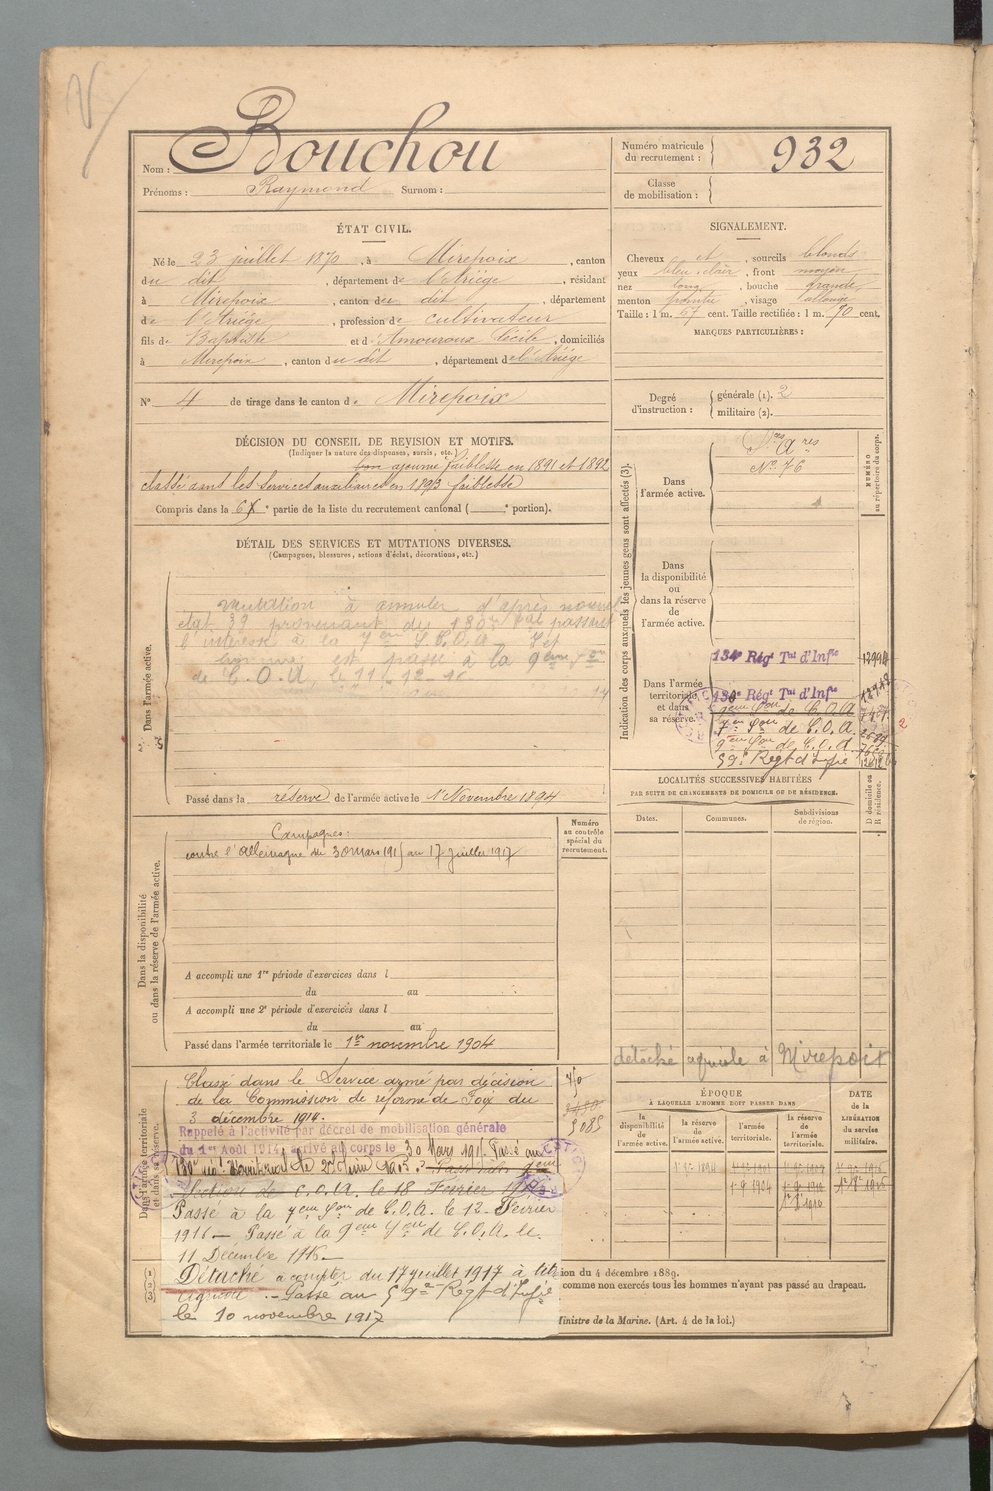 Nom : Bouchou
Prénoms : Raymond Surnom :
Numéro matricule du recrutement : 932
Classe de mobilisation :
ÉTAT CIVIL.
Né le 23 juillet 1870, à Mirepoix, canton
du dit, département de l'Ariège, résidant
à Mirepoix, canton du dit, département
de l'Ariége, profession de cultivateur
fils de Baptiste et d'Amouroux Cécile, domiciliés
à Mirepoix, canton du dit, département de l'Ariége
N° 4 de tirage dans le canton de Mirepoix
SIGNALEMENT.
Cheveux et, sourcils blonds
yeux bleu clair, front moyen
nez long, bouche grande
menton pointu, visage allongé
Taille : 1 m. 67 cent. Taille rectifiée : 1 m. 70 cent.
MARQUES PARTICULIÈRES :
Degré d'instruction : générale (1). 2
militaire (2).
DÉCISION DU CONSEIL DE REVISION ET MOTIFS.
(Indiquer la nature des dispenses, sursis, etc.)
bon ajourné faiblesse en 1891 et 1892
classé dans les services auxiliaires en 1893 faiblesse
Compris dans la 6 e partie de la liste du recrutement cantonal ( e portion).
DÉTAIL DES SERVICES ET MUTATIONS DIVERSES.
(Campagnes, blessures, actions d'éclat, décorations, etc.)
Dans l'armée active.
mutation à annuler d'après nouvel
état 39 provenant des 130e Tal passant
l'intéressé à la 7eme S.C.O.A.
est passé à la 9eme Son
de C.O.A. le 11-12-16
Passé dans la réserve de l'armée active le 1 Novembre 1894
Indication des corps auxquels les jeunes gens sont affectés (3).
Dans l'armée active.
Sces Aires
N° 76
NUMÉRO au répertoire du corps.
Dans la disponibilité ou dans la réserve de l'armée active.
Dans l'armée territoriale et dans sa réserve.
134e Régt Tal d'Infie
130e Régt Tal d'Infie
9eme Son de C.O.A.
7eme Son de C.O.A.
9eme Son de C.O.A.
59e Regt d'Infie
LOCALITÉS SUCCESSIVES HABITÉES
PAR SUITE DE CHANGEMENTS DE DOMICILE OU DE RÉSIDENCE.
Dates. Communes. Subdivisions de région. D domicile ou R résidence.
détaché agricole à Mirepoix
Dans la disponibilité ou dans la réserve de l'armée active.
Numéro au contrôle spécial du recrutement.
Campagnes :
contre l'Allemagne du 30 mars 1915 au 17 juillet 1917
A accompli une 1re période d'exercices dans l
du au
A accompli une 2e période d'exercices dans l
du au
Passé dans l'armée territoriale le 1er novembre 1904
Dans l'armée territoriale et dans sa réserve.
Classé dans le Service armé par décision
de la Commission de réforme de Foix du
3 décembre 1914.
Rappelé à l'activité par décret de mobilisation générale
du 1er Août 1914, arrivé au corps le 30 Mars 1915. Passé au
Section de C.O.A. le 18 Février
Passé à la 7eme Son de C.O.A. le 12 Février
1916 — Passé à la 9eme Son de C.O.A. le
11 Décembre 1916 —
Détaché à compter du 17 juillet 1917 à titre
agricole. — Passé au 59e Regt d'Infie
le 10 novembre 1917
3085
ÉPOQUE
À LAQUELLE L'HOMME DOIT PASSER DANS
la disponibilité de l'armée active. la réserve de l'armée active. l'armée territoriale. la réserve de l'armée territoriale.
DATE de la LIBÉRATION du service militaire.
(1)
(2)
(3)
ion du 4 décembre 1889.
comme non exercés tous les hommes n'ayant pas passé au drapeau.
Ministre de la Marine. (Art. 4 de la loi.)